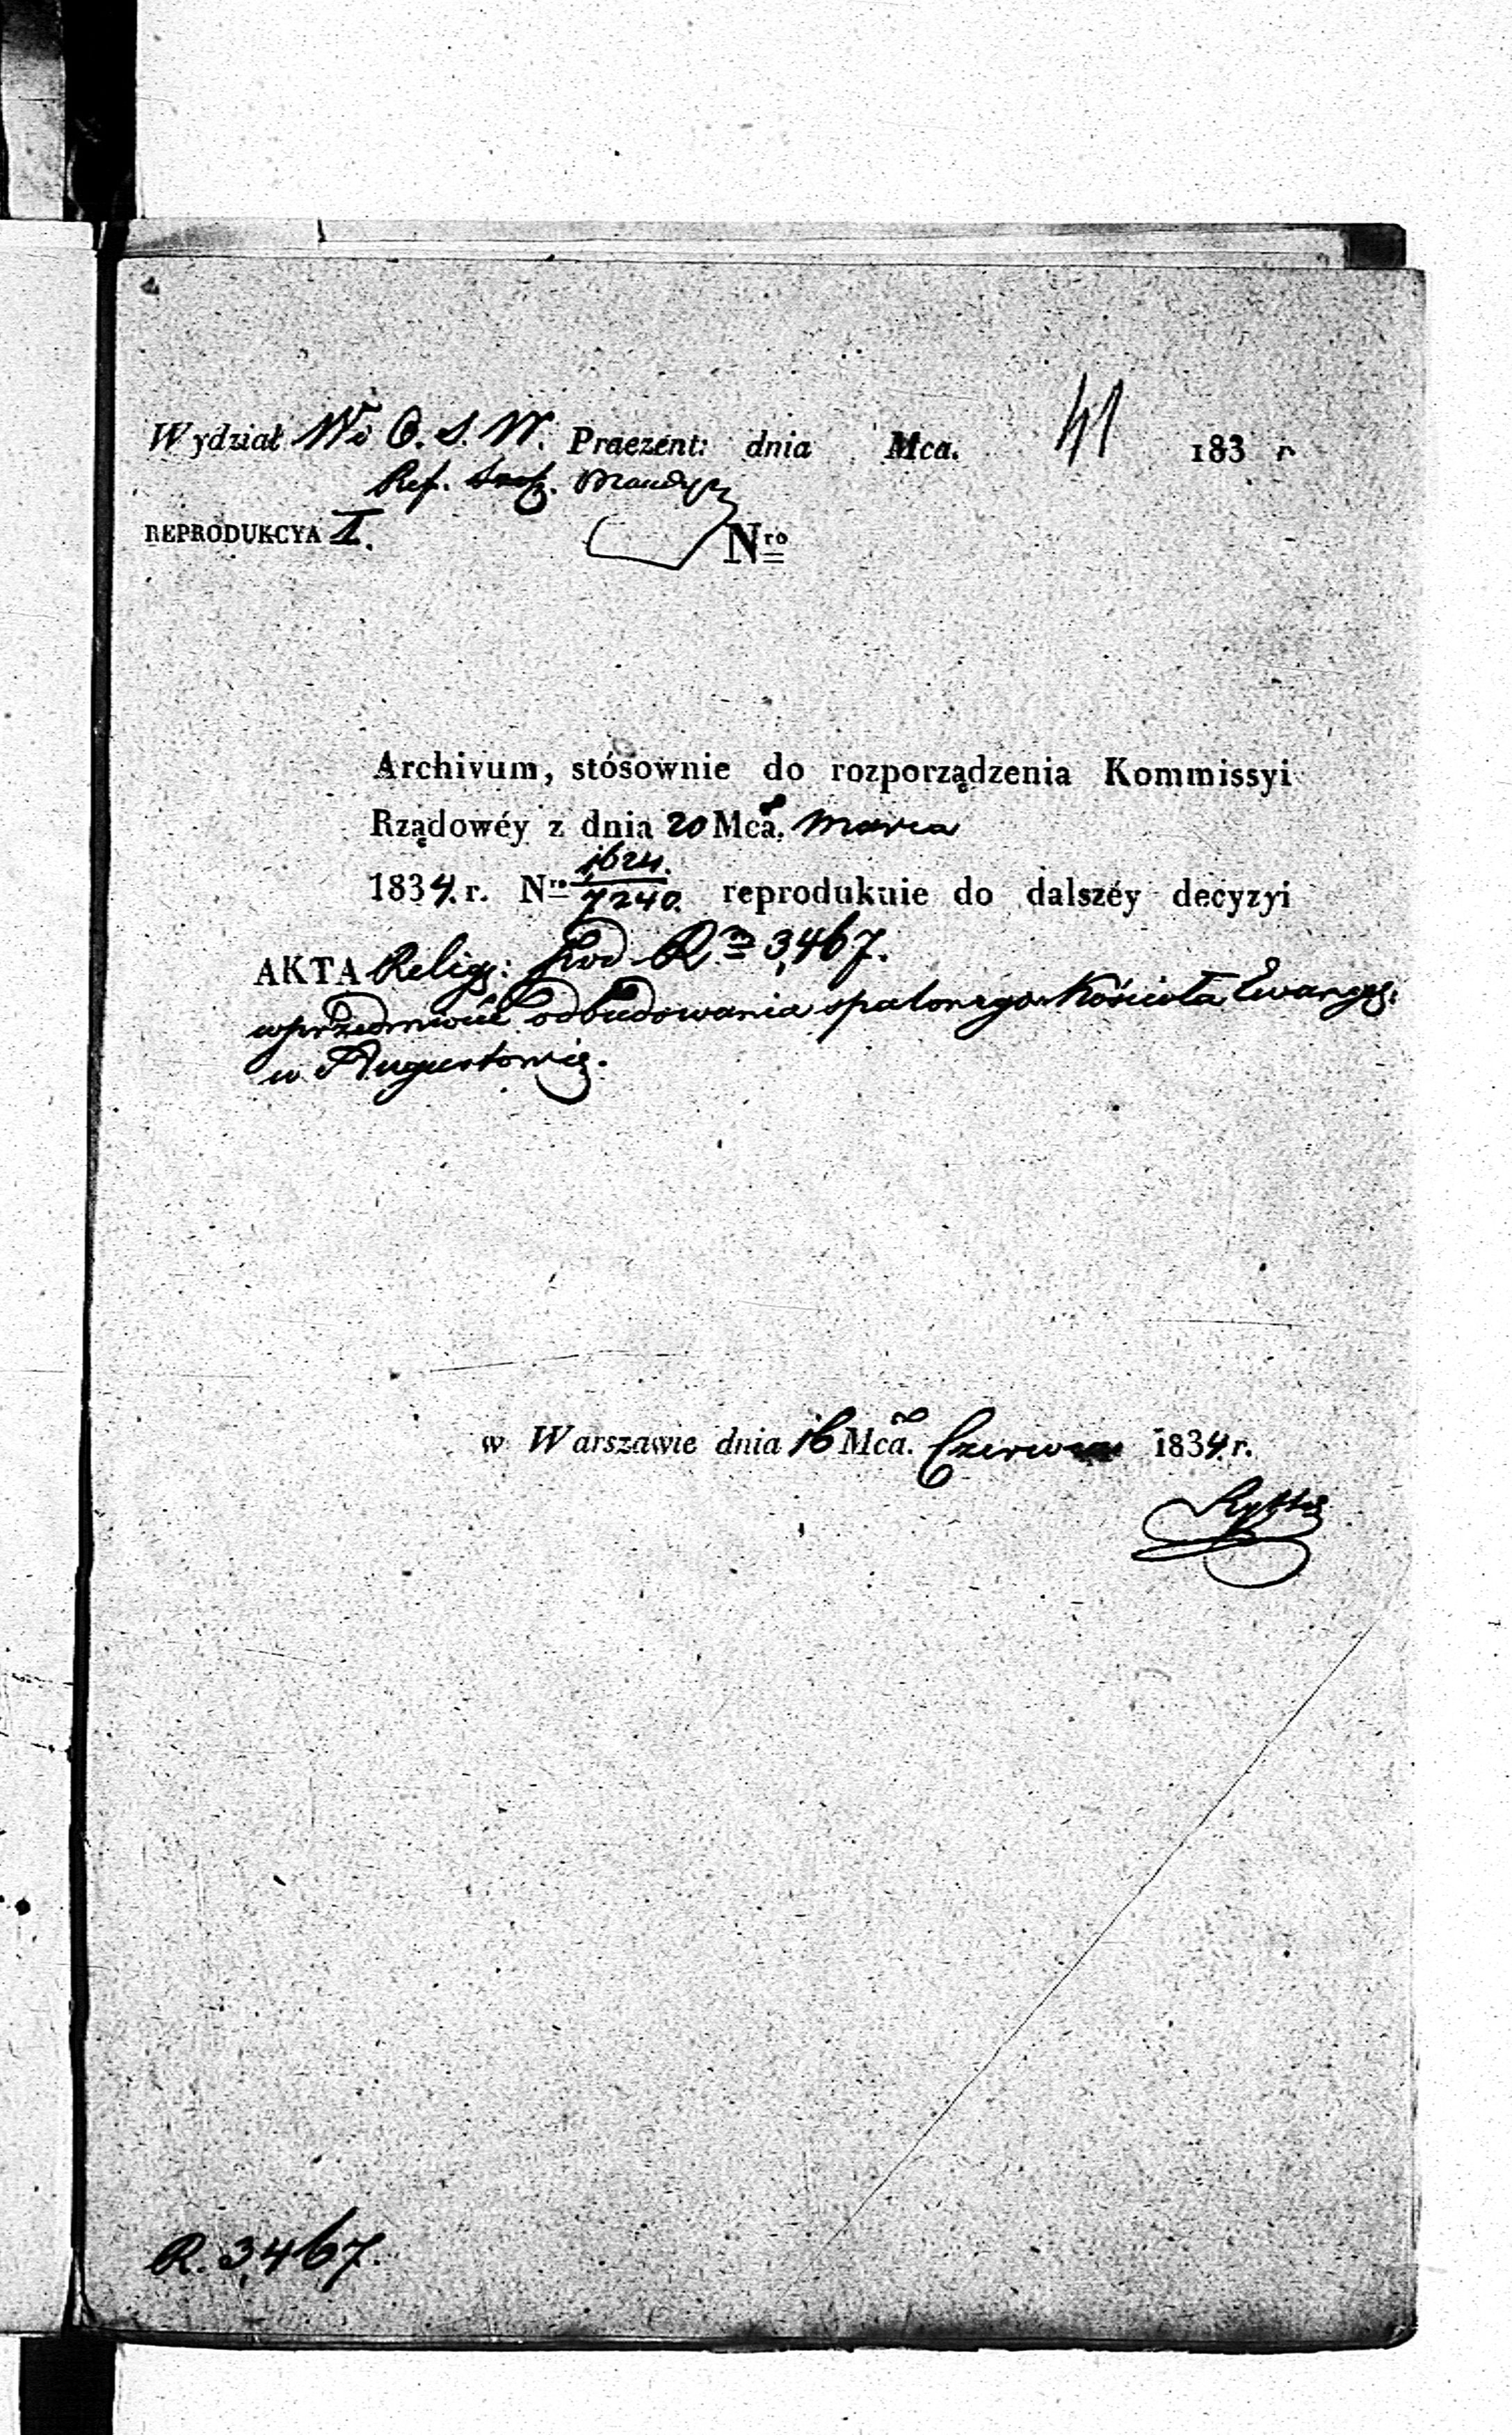 41
Wydział W. O. S. W. Praezent: dnia Mca. 183 r
Ref.
REPRODUKCYA I. Nro
Archivum, stósownie do rozporządzenia Kommissyi
Rządowéy z dnia 20 Mca. Marca
1834. r. Nro 1624./7240. reprodukuie do dalszéy decyzyi
AKTA Relig: pod Rm 3,467.
w przedmiocie odbudowania spalonego Kościoła Ewangel:
w Augustowie.
w Warszawie dnia 16 Mca. Czerwca 1834. r.
R. 3,467.